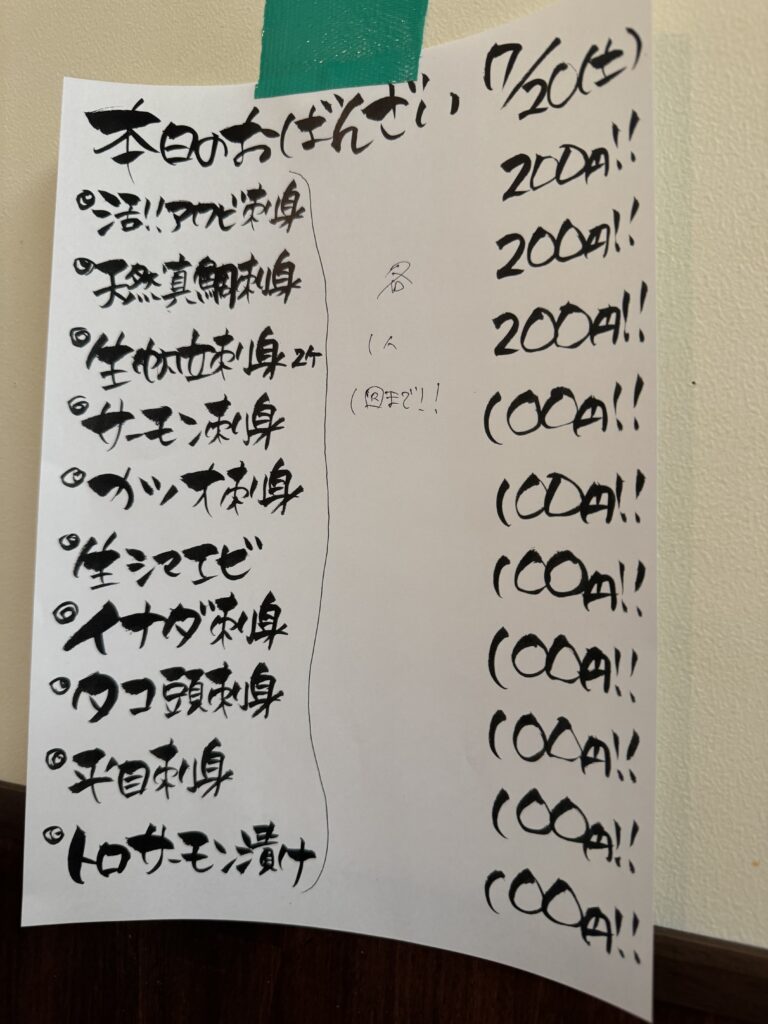 本日のおばんざい 7/20(土)
◎活!!アワビ刺身 200円!!
◎天然真鯛刺身 200円!!
◎生ホタテ刺身 2ケ 200円!!
◎サーモン刺身 100円!!
◎カツオ刺身 100円!!
◎生シマエビ 100円!!
◎イナダ刺身 100円!!
◎タコ頭刺身 100円!!
◎平目刺身 100円!!
◎トロサーモン漬け 100円!!
各
1人
1回まで!!